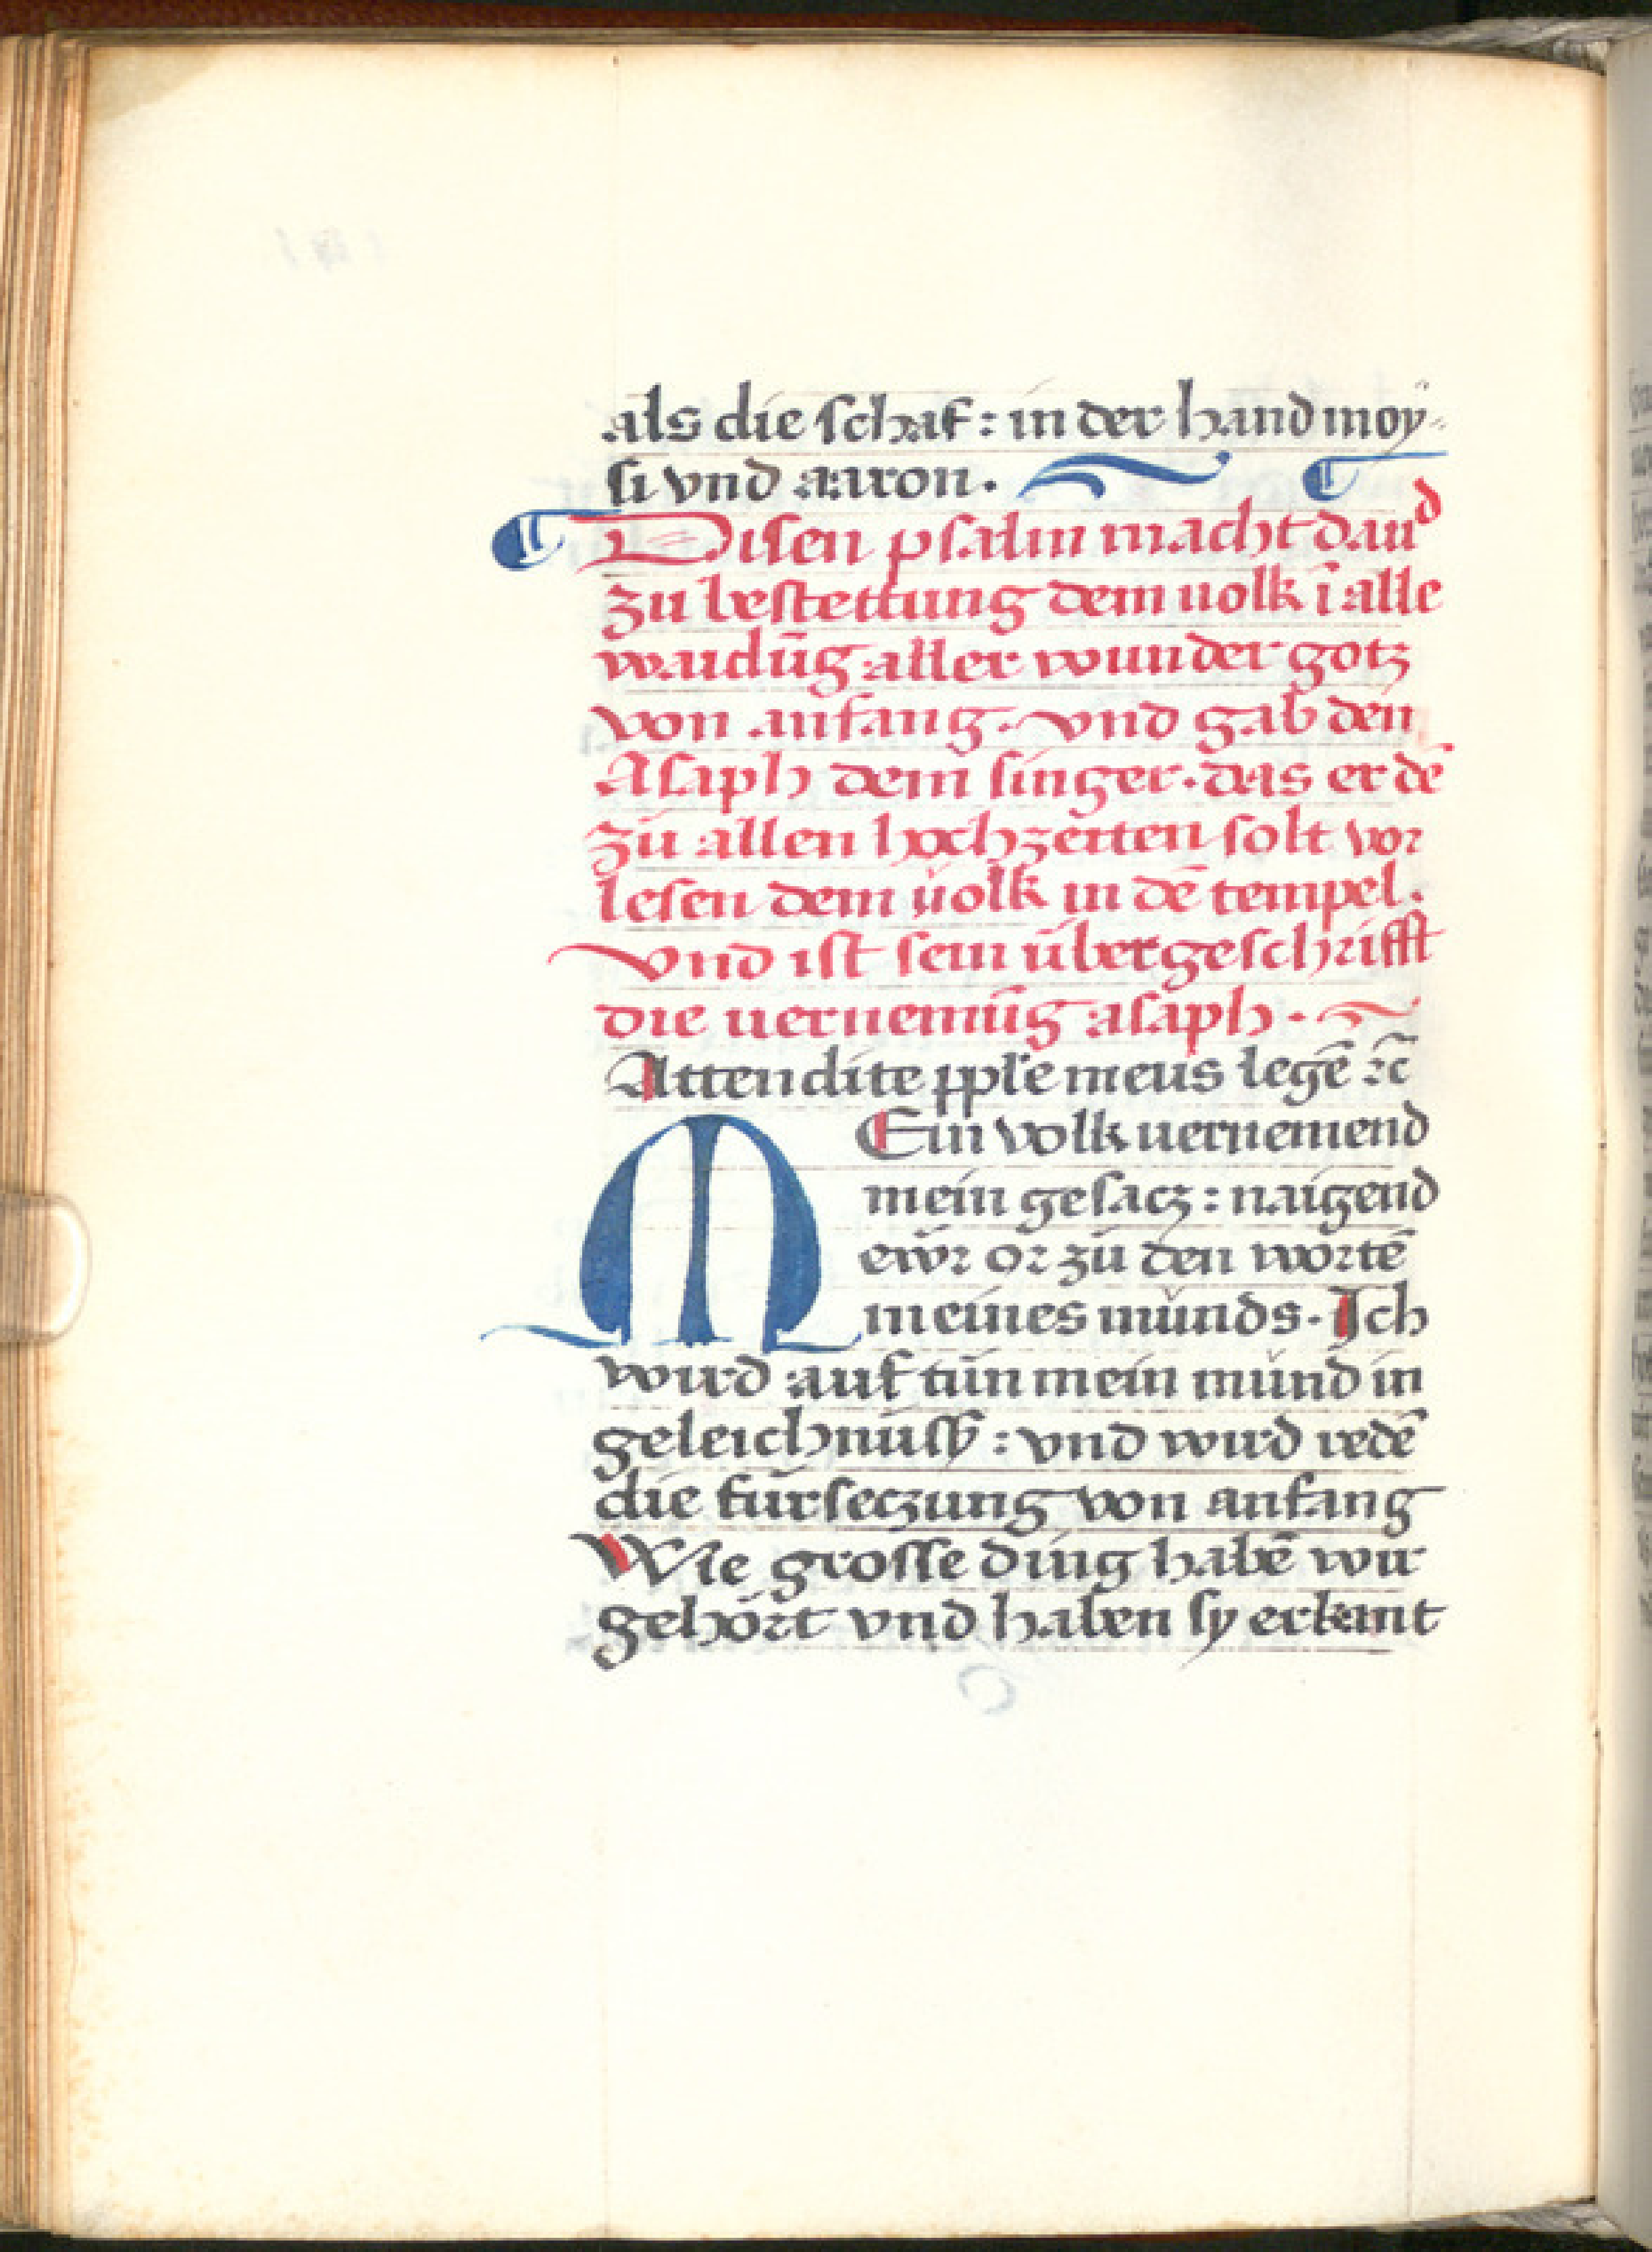 als die ſchaf : in der hand moÿ-
ſi vnd aaron . ¶
¶ Diſen pſalm macht dauid
zu beſtettung dem uolk ī alle
waidūg aller wunder gotz
von anfang . vnd gab den
Aſaph dem ſinger . das er dē
zů allen hochzeitten ſolt vor
leſen dem uolk in dē tempel .
Vnd iſt ſein übergeſchrifft
die uernemūg aſaph .
Attendite pple meus legē ⁊c̄
MEin volk uernemend
mein geſacz : naigend
ewr or zů den wortē
meines munds . Ich
wird auf tůn mein mund in
geleichnuſſ : vnd wird redē
die fürſeczung von anfang
Wie groſſe ding habē wir
gehört vnd haben ſy erkant